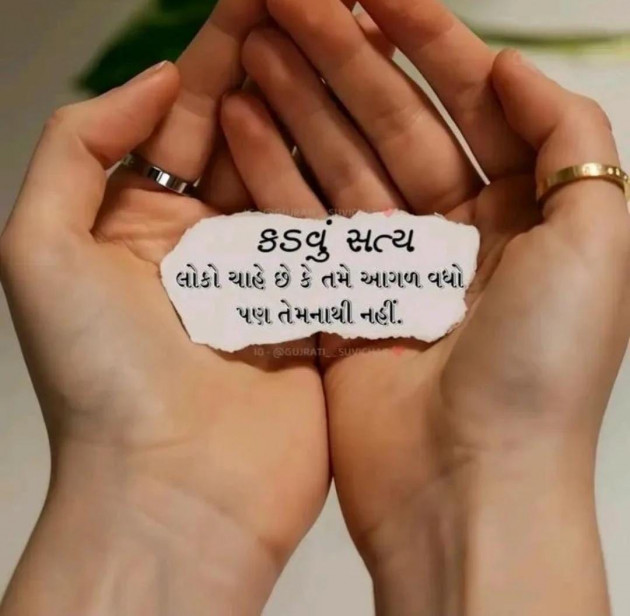 કડવું સત્ય
લોકો ચાહે છે કે તમે આગળ વધો
પણ તેમનાથી નહીં.
IG - @GUJRATI_._SUVICHAR